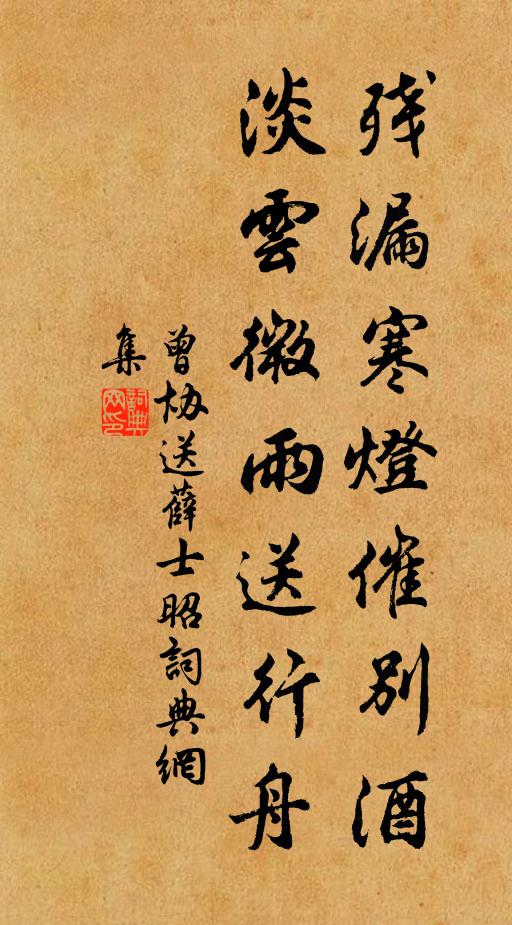 残漏寒燈催別酒
淡雲微雨送行舟
曾協送薛士昭詞典網
集
詞典
网印